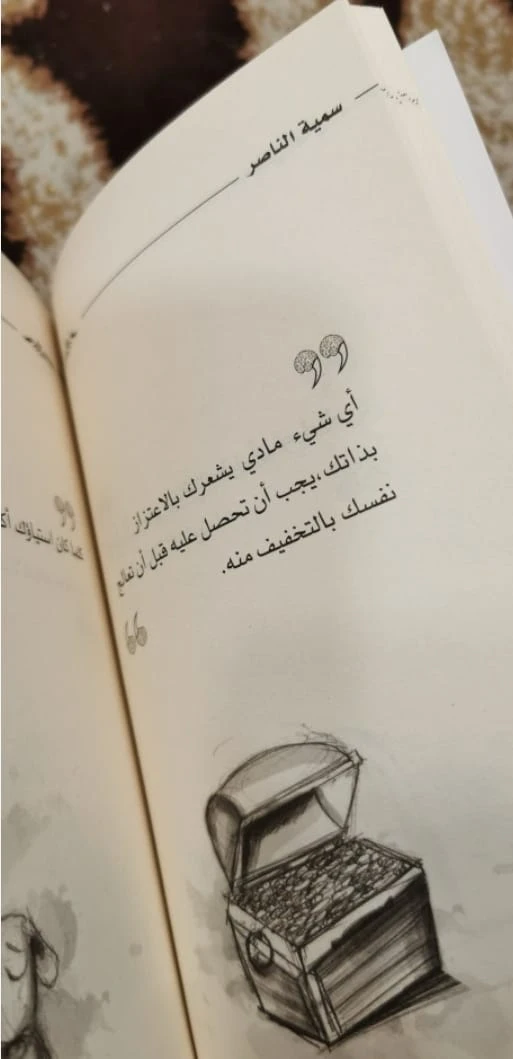 سمية الناصر
أي شيء مادي يشعرك بالاعتزاز
بذاتك،يجب أن تحصل عليه قبل أن تعالج
نفسك بالتخفيف منه.
كلما كان استياؤك